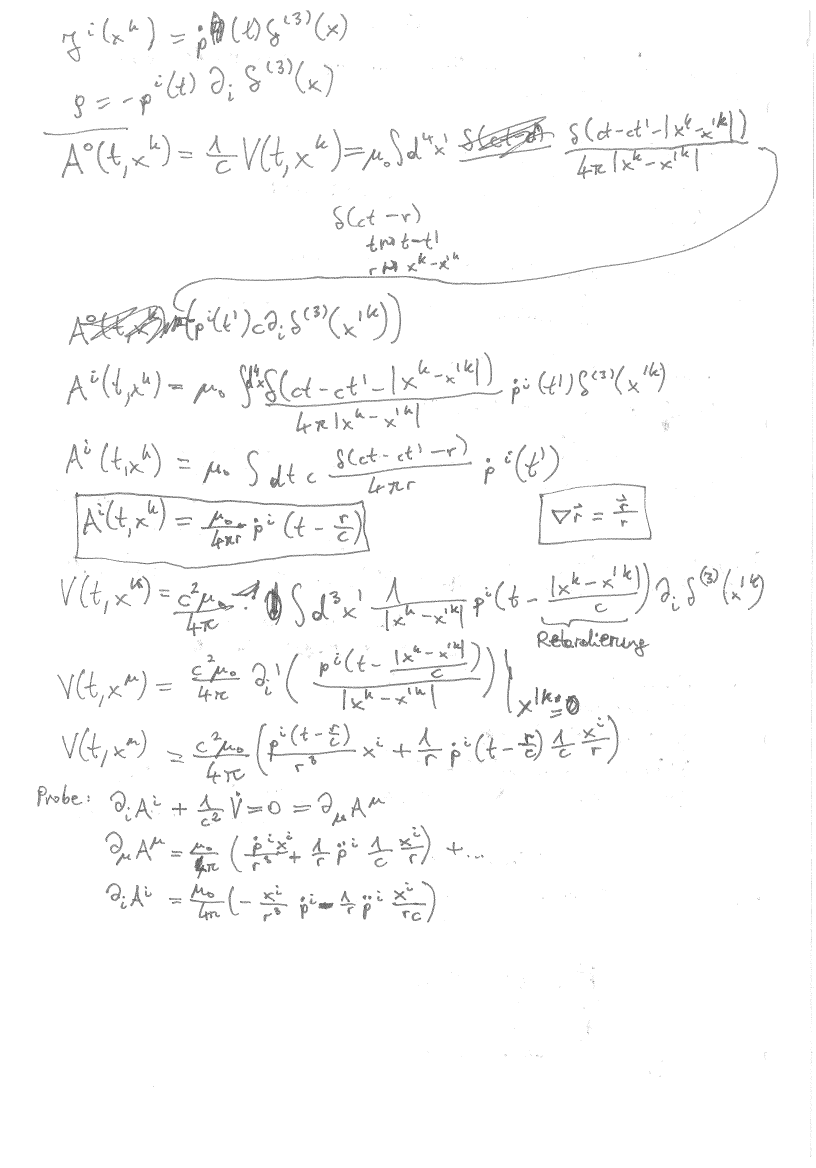 j^i(x^k) = ṗ^i(t) δ^(3)(x)
ρ = -p^i(t) ∂_i δ^(3)(x)
A^0(t,x^k) = 1/c V(t,x^k) = μ_0 ∫ d^4x' δ(ct-ct'-|x^k-x'^k|) / 4π|x^k-x'^k|
δ(ct-r)
t ↦ t-t'
r ↦ x^k-x'^k
(p^i(t') c∂_i δ^(3)(x'^k))
A^i(t,x^k) = μ_0 ∫ d^4x' δ(ct-ct'-|x^k-x'^k|) / 4π|x^k-x'^k| ṗ^i(t') δ^(3)(x'^k)
A^i(t,x^k) = μ_0 ∫ dt c δ(ct-ct'-r) / 4πr ṗ^i(t')
A^i(t,x^k) = μ_0/4πr ṗ^i(t - r/c)
∇r⃗ = r⃗/r
V(t,x^k) = c²μ_0/4π ∫ d³x' 1/|x^k-x'^k| p^i(t - |x^k-x'^k|/c) ∂_i δ^(3)(x'^k)
Retardierung
V(t,x^μ) = c²μ_0/4π ∂_i' ( p^i(t - |x^k-x'^k|/c) / |x^k-x'^k| ) | x'^k=0
V(t,x^μ) = c²μ_0/4π ( p^i(t-r/c)/r³ x^i + 1/r ṗ^i(t-r/c) 1/c x^i/r )
Probe: ∂_i A^i + 1/c² V̇ = 0 = ∂_μ A^μ
∂_μ A^μ = μ_0/4π ( ṗ^i x^i/r³ + 1/r p̈^i 1/c x^i/r ) + ...
∂_i A^i = μ_0/4π ( - x^i/r³ ṗ^i - 1/r p̈^i x^i/rc )